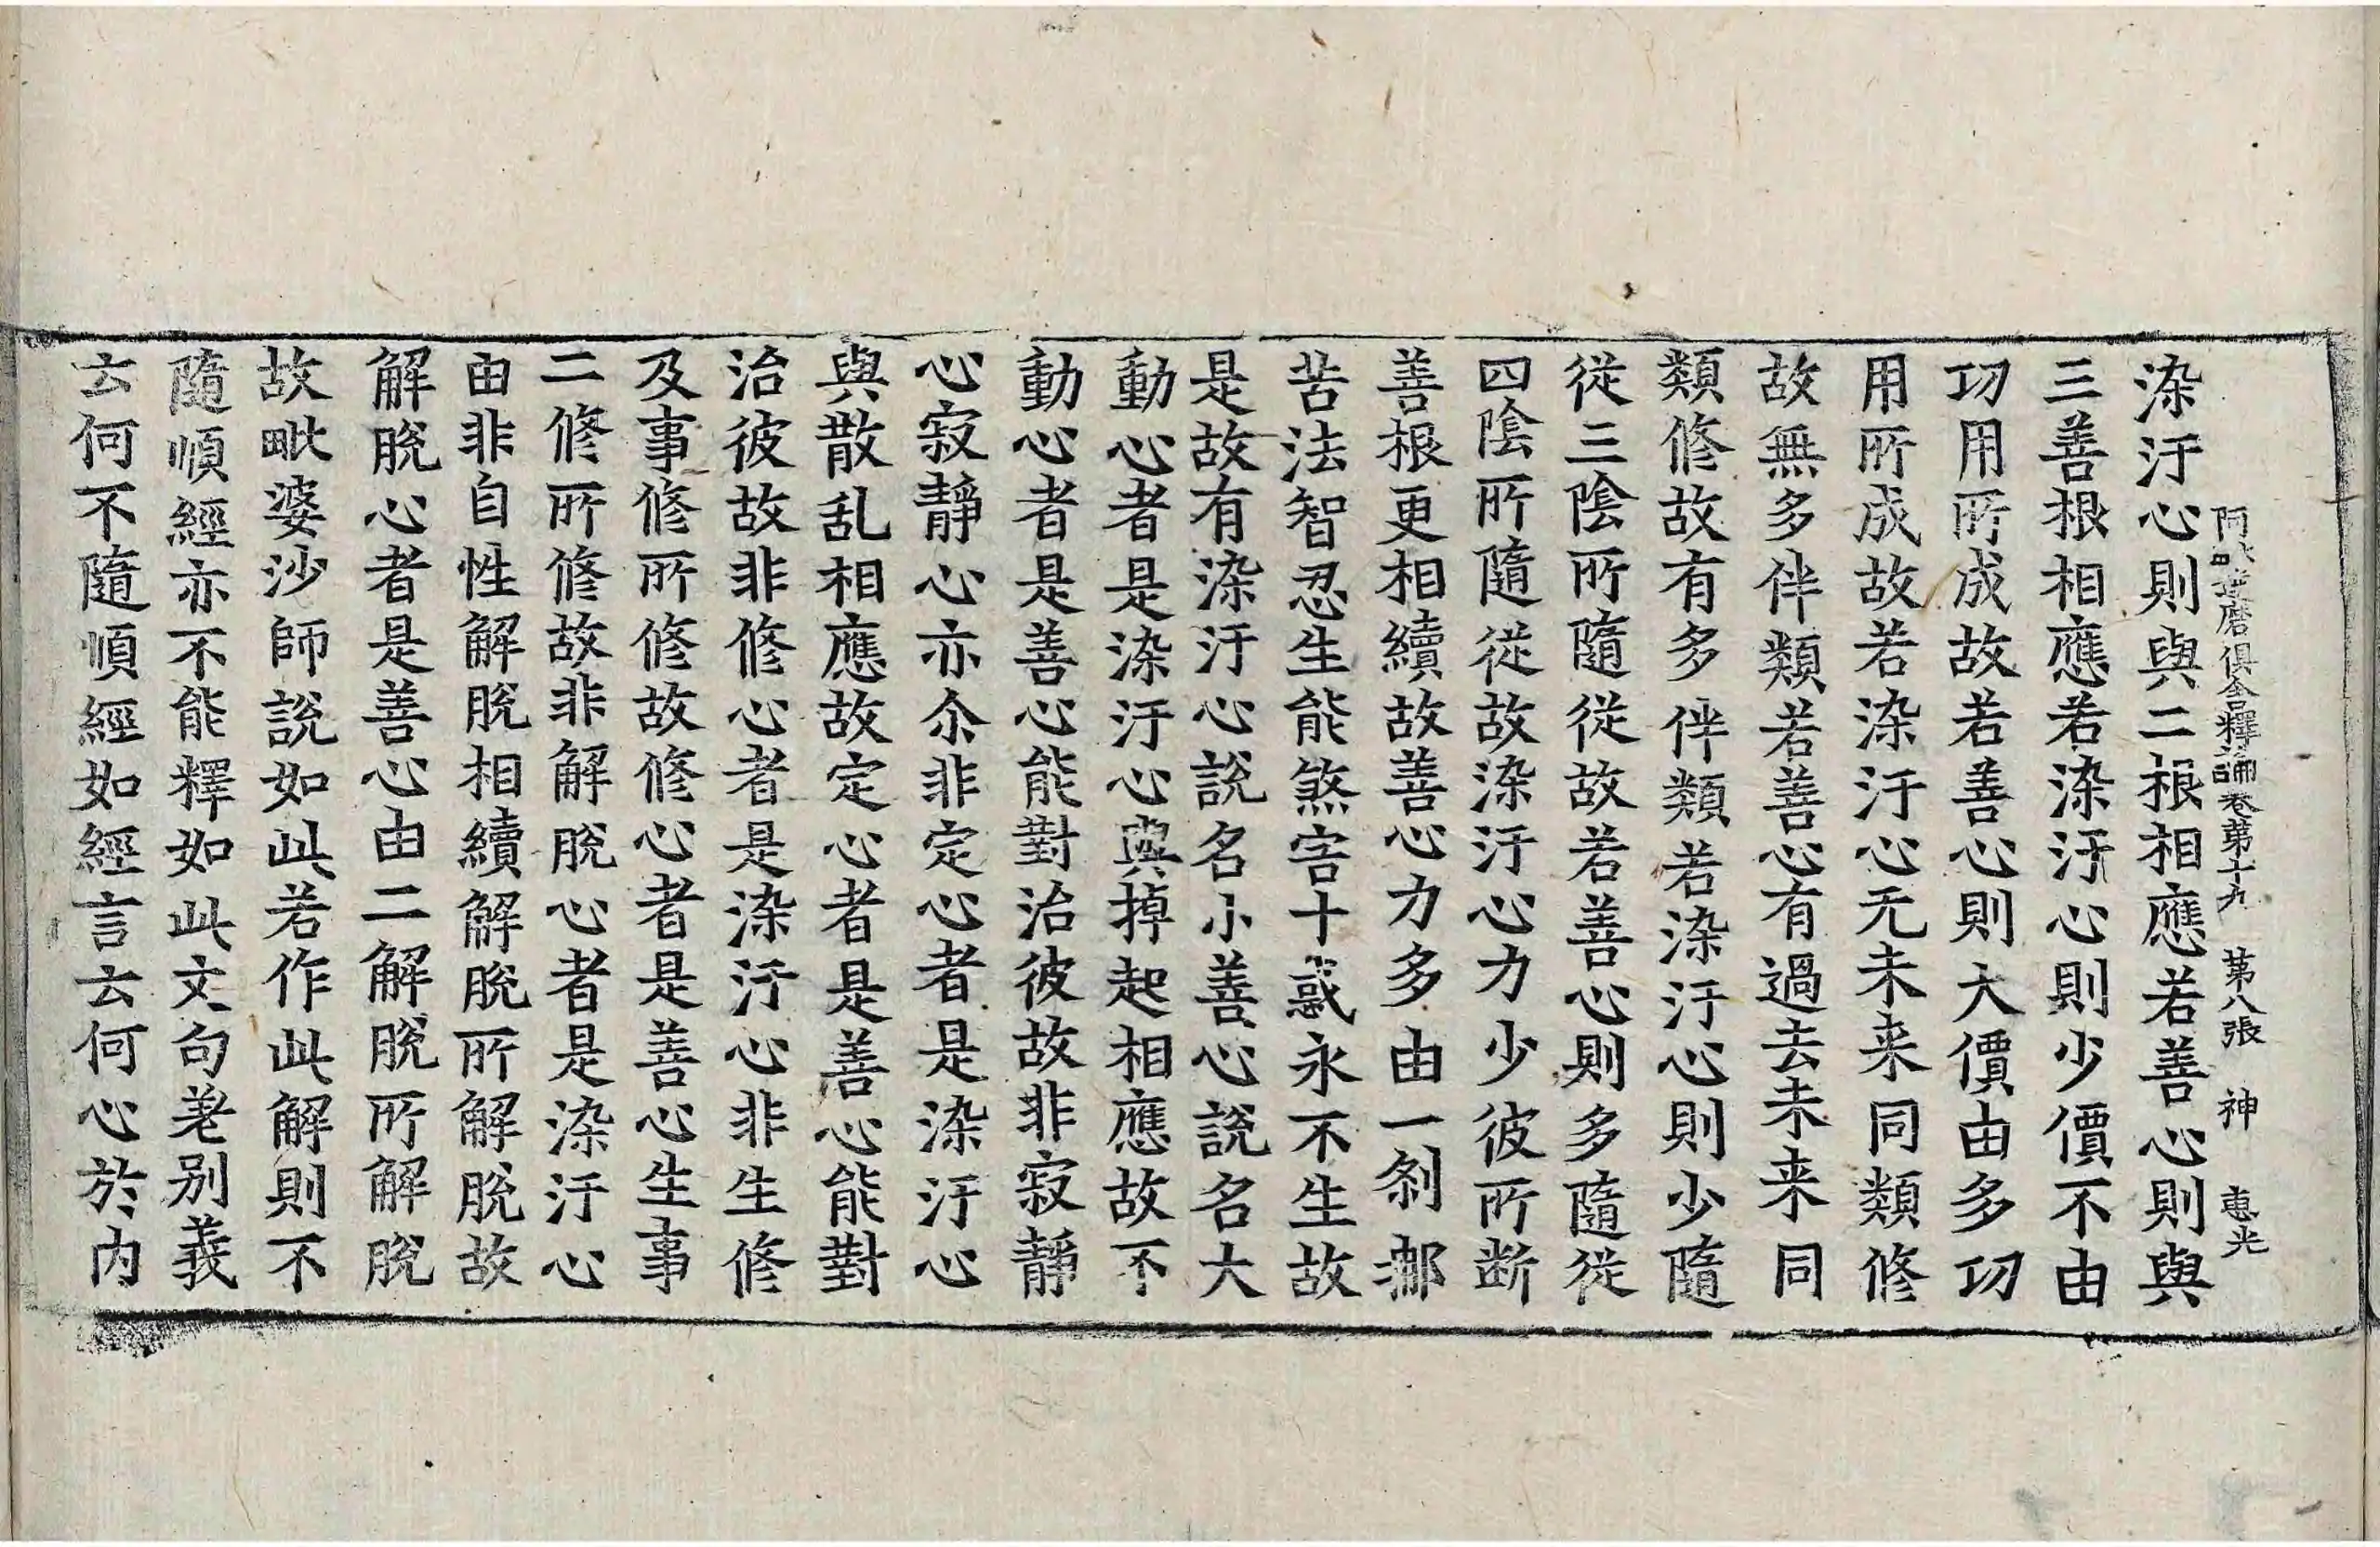 阿毗達磨俱舍釋論卷第十九　第八張　神　惠光
染汙心則與二根相應若善心則與
三善根相應若染汙心則少價不由
功用所成故若善心則大價由多功
用所成故若染汙心无未来同類修
故無多伴類若善心有過去未来同
類修故有多伴類若染汙心則少隨
從三陰所隨從故若善心則多隨從
四陰所隨從故染汙心力少彼所断
善根更相續故善心力多由一剎那
苦法智忍生能煞害十惑永不生故
是故有染汙心說名小善心說名大
動心者是染汙心與掉起相應故不
動心者是善心能對治彼故非寂靜
心寂靜心亦尒非定心者是染汙心
與散乱相應故定心者是善心能對
治彼故非修心者是染汙心非生修
及事修所修故修心者是善心生事
二修所修故非解脫心者是染汙心
由非自性解脫相續解脫所解脫故
解脫心者是善心由二解脫所解脫
故毗婆沙師說如此若作此解則不
隨順經亦不能釋如此文句差別義
云何不隨順經如經言云何心於內